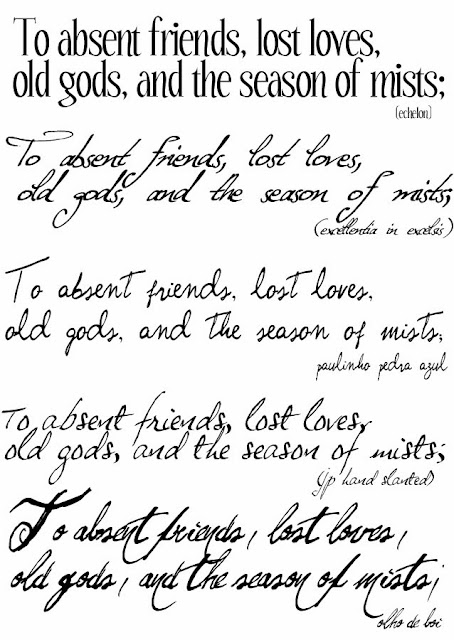 To absent friends, lost loves,
old gods, and the season of mists;
(echelon)
To absent friends, lost loves,
old gods, and the season of mists;
(excellentia in excelsis)
To absent friends, lost loves,
old gods, and the season of mists;
paulinho pedra azul
To absent friends, lost loves,
old gods, and the season of mists;
(jp hand slanted)
To absent friends, lost loves,
old gods, and the season of mists;
olho de boi